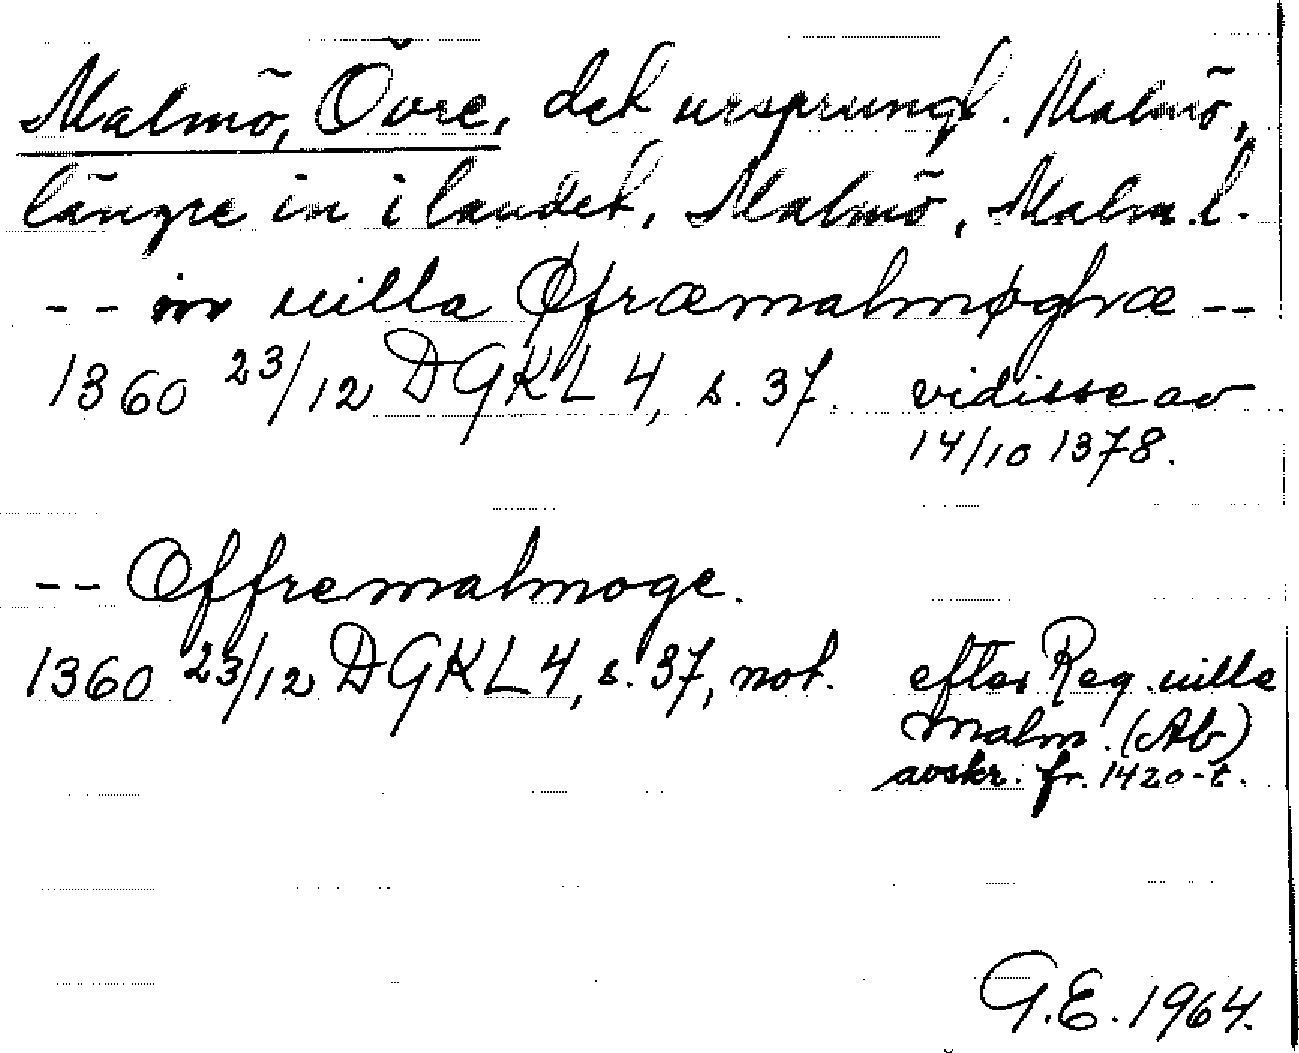 Malmö, Övre, det ursprungl. Malmö,
längre in i landet, Malmö, Malm. l.
-- in uilla Øfræmalmøghæ --
1360 23/12 DGKL 4, s. 37. vidisse av
14/10 1378.
-- Offremalmoge.
1360 23/12 DGKL 4, s. 37, not. efter Reg. uille
malm. (Ab)
avskr. fr. 1420-t.
G.E. 1964.